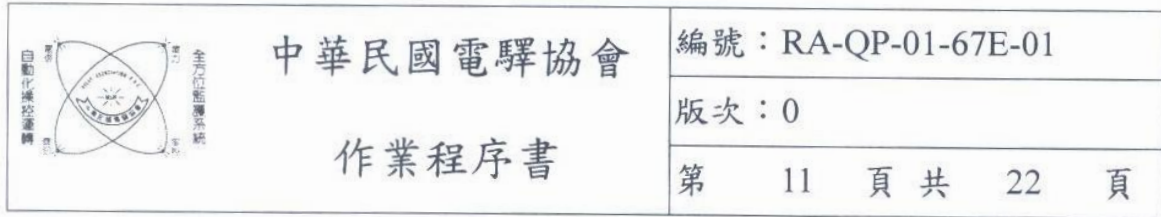 自動化操控運轉
全方位監護系統
中華民國電驛協會
作業程序書
編號：RA-QP-01-67E-01
版次：0
第 11 頁 共 22 頁